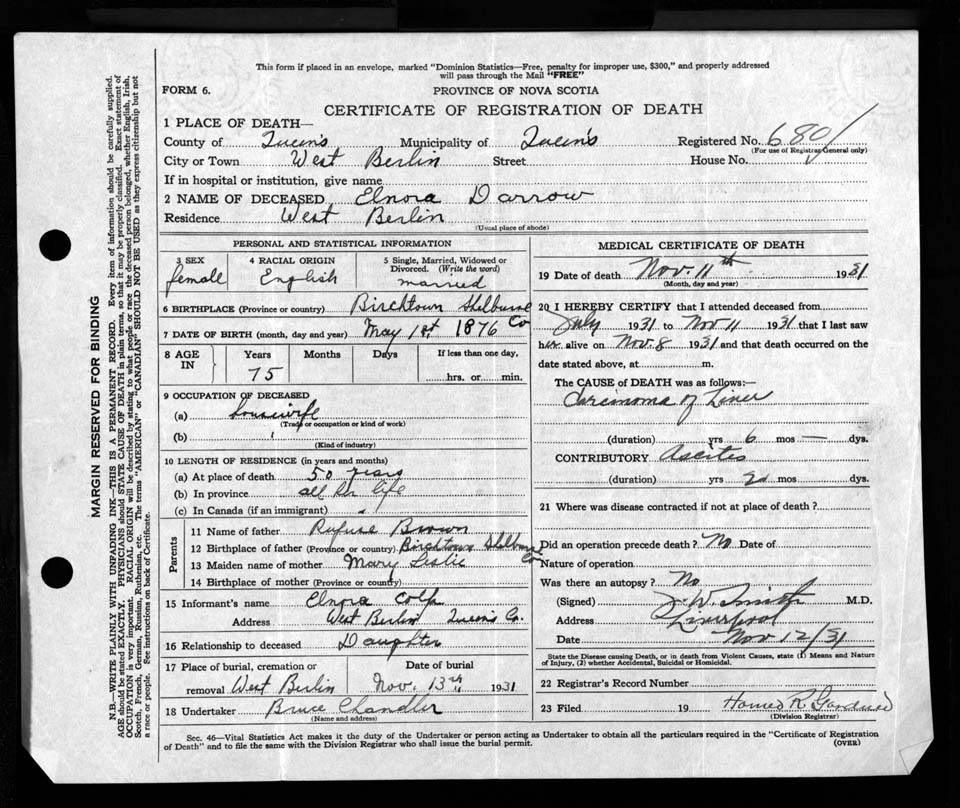 This form if placed in an envelope, marked "Dominion Statistics—Free, penalty for improper use, $300," and properly addressed
will pass through the Mail "FREE"
FORM 6.
PROVINCE OF NOVA SCOTIA
CERTIFICATE OF REGISTRATION OF DEATH
1 PLACE OF DEATH—
County of Queen's Municipality of Queen's Registered No. 680
(For use of Registrar General only)
City or Town West Berlin Street House No.
If in hospital or institution, give name
2 NAME OF DECEASED Elnora Darrow
Residence West Berlin
(Usual place of abode)
PERSONAL AND STATISTICAL INFORMATION
3 SEX
female
4 RACIAL ORIGIN
English
5 Single, Married, Widowed or
Divorced. (Write the word)
married
6 BIRTHPLACE (Province or country) Birchtown Shelburne Co
7 DATE OF BIRTH (month, day and year) May 1st, 1876
8 AGE IN
Years
75
Months
Days
If less than one day,
hrs. or min.
9 OCCUPATION OF DECEASED
(a) housewife
(Trade or occupation or kind of work)
(b)
(Kind of industry)
10 LENGTH OF RESIDENCE (in years and months)
(a) At place of death 50 years
(b) In province all her life
(c) In Canada (if an immigrant)
Parents
11 Name of father Rufuse Brown
12 Birthplace of father (Province or country) Birchtown Shelburne Co
13 Maiden name of mother Mary Leslie
14 Birthplace of mother (Province or county)
15 Informant's name Elnora Colp
Address West Berlin Queen's Co.
16 Relationship to deceased Daughter
17 Place of burial, cremation or
removal West Berlin
Date of burial
Nov. 13th 1931
18 Undertaker Bruce Chandler
(Name and address)
MEDICAL CERTIFICATE OF DEATH
19 Date of death Nov. 11th 1931
(Month, day and year)
20 I HEREBY CERTIFY that I attended deceased from
July 1931 to Nov 11 1931 that I last saw
her alive on Nov. 8 1931 and that death occurred on the
date stated above, at m.
The CAUSE of DEATH was as follows:—
Carcinoma of Liver
(duration) yrs 6 mos — dys.
CONTRIBUTORY Ascites
(duration) yrs 2 mos dys.
21 Where was disease contracted if not at place of death?
Did an operation precede death? No Date of
Nature of operation
Was there an autopsy? No
(Signed) J. W. Smith M.D.
Address Liverpool
Date Nov 12/31
State the Disease causing Death, or in death from Violent Causes, state (1) Means and Nature
of Injury, (2) whether Accidental, Suicidal or Homicidal.
22 Registrar's Record Number
23 Filed 19 Homer R Gardner
(Division Registrar)
Sec. 46—Vital Statistics Act makes it the duty of the Undertaker or person acting as Undertaker to obtain all the particulars required in the "Certificate of Registration
of Death" and to file the same with the Division Registrar who shall issue the burial permit. (OVER)
MARGIN RESERVED FOR BINDING
N.B.—WRITE PLAINLY WITH UNFADING INK—THIS IS A PERMANENT RECORD. Every item of information should be carefully supplied.
AGE should be stated EXACTLY. PHYSICIANS should STATE CAUSE OF DEATH in plain terms, so that it may be properly classified. Exact statement of
OCCUPATION is very important. RACIAL ORIGIN will be described by stating to what people or race the deceased person belonged, whether English, Irish,
Scotch, French, German, Russian, Ruthenian, etc. The terms "AMERICAN" or "CANADIAN" SHOULD NOT BE USED as they express citizenship but not
a race or people. See instructions on back of Certificate.